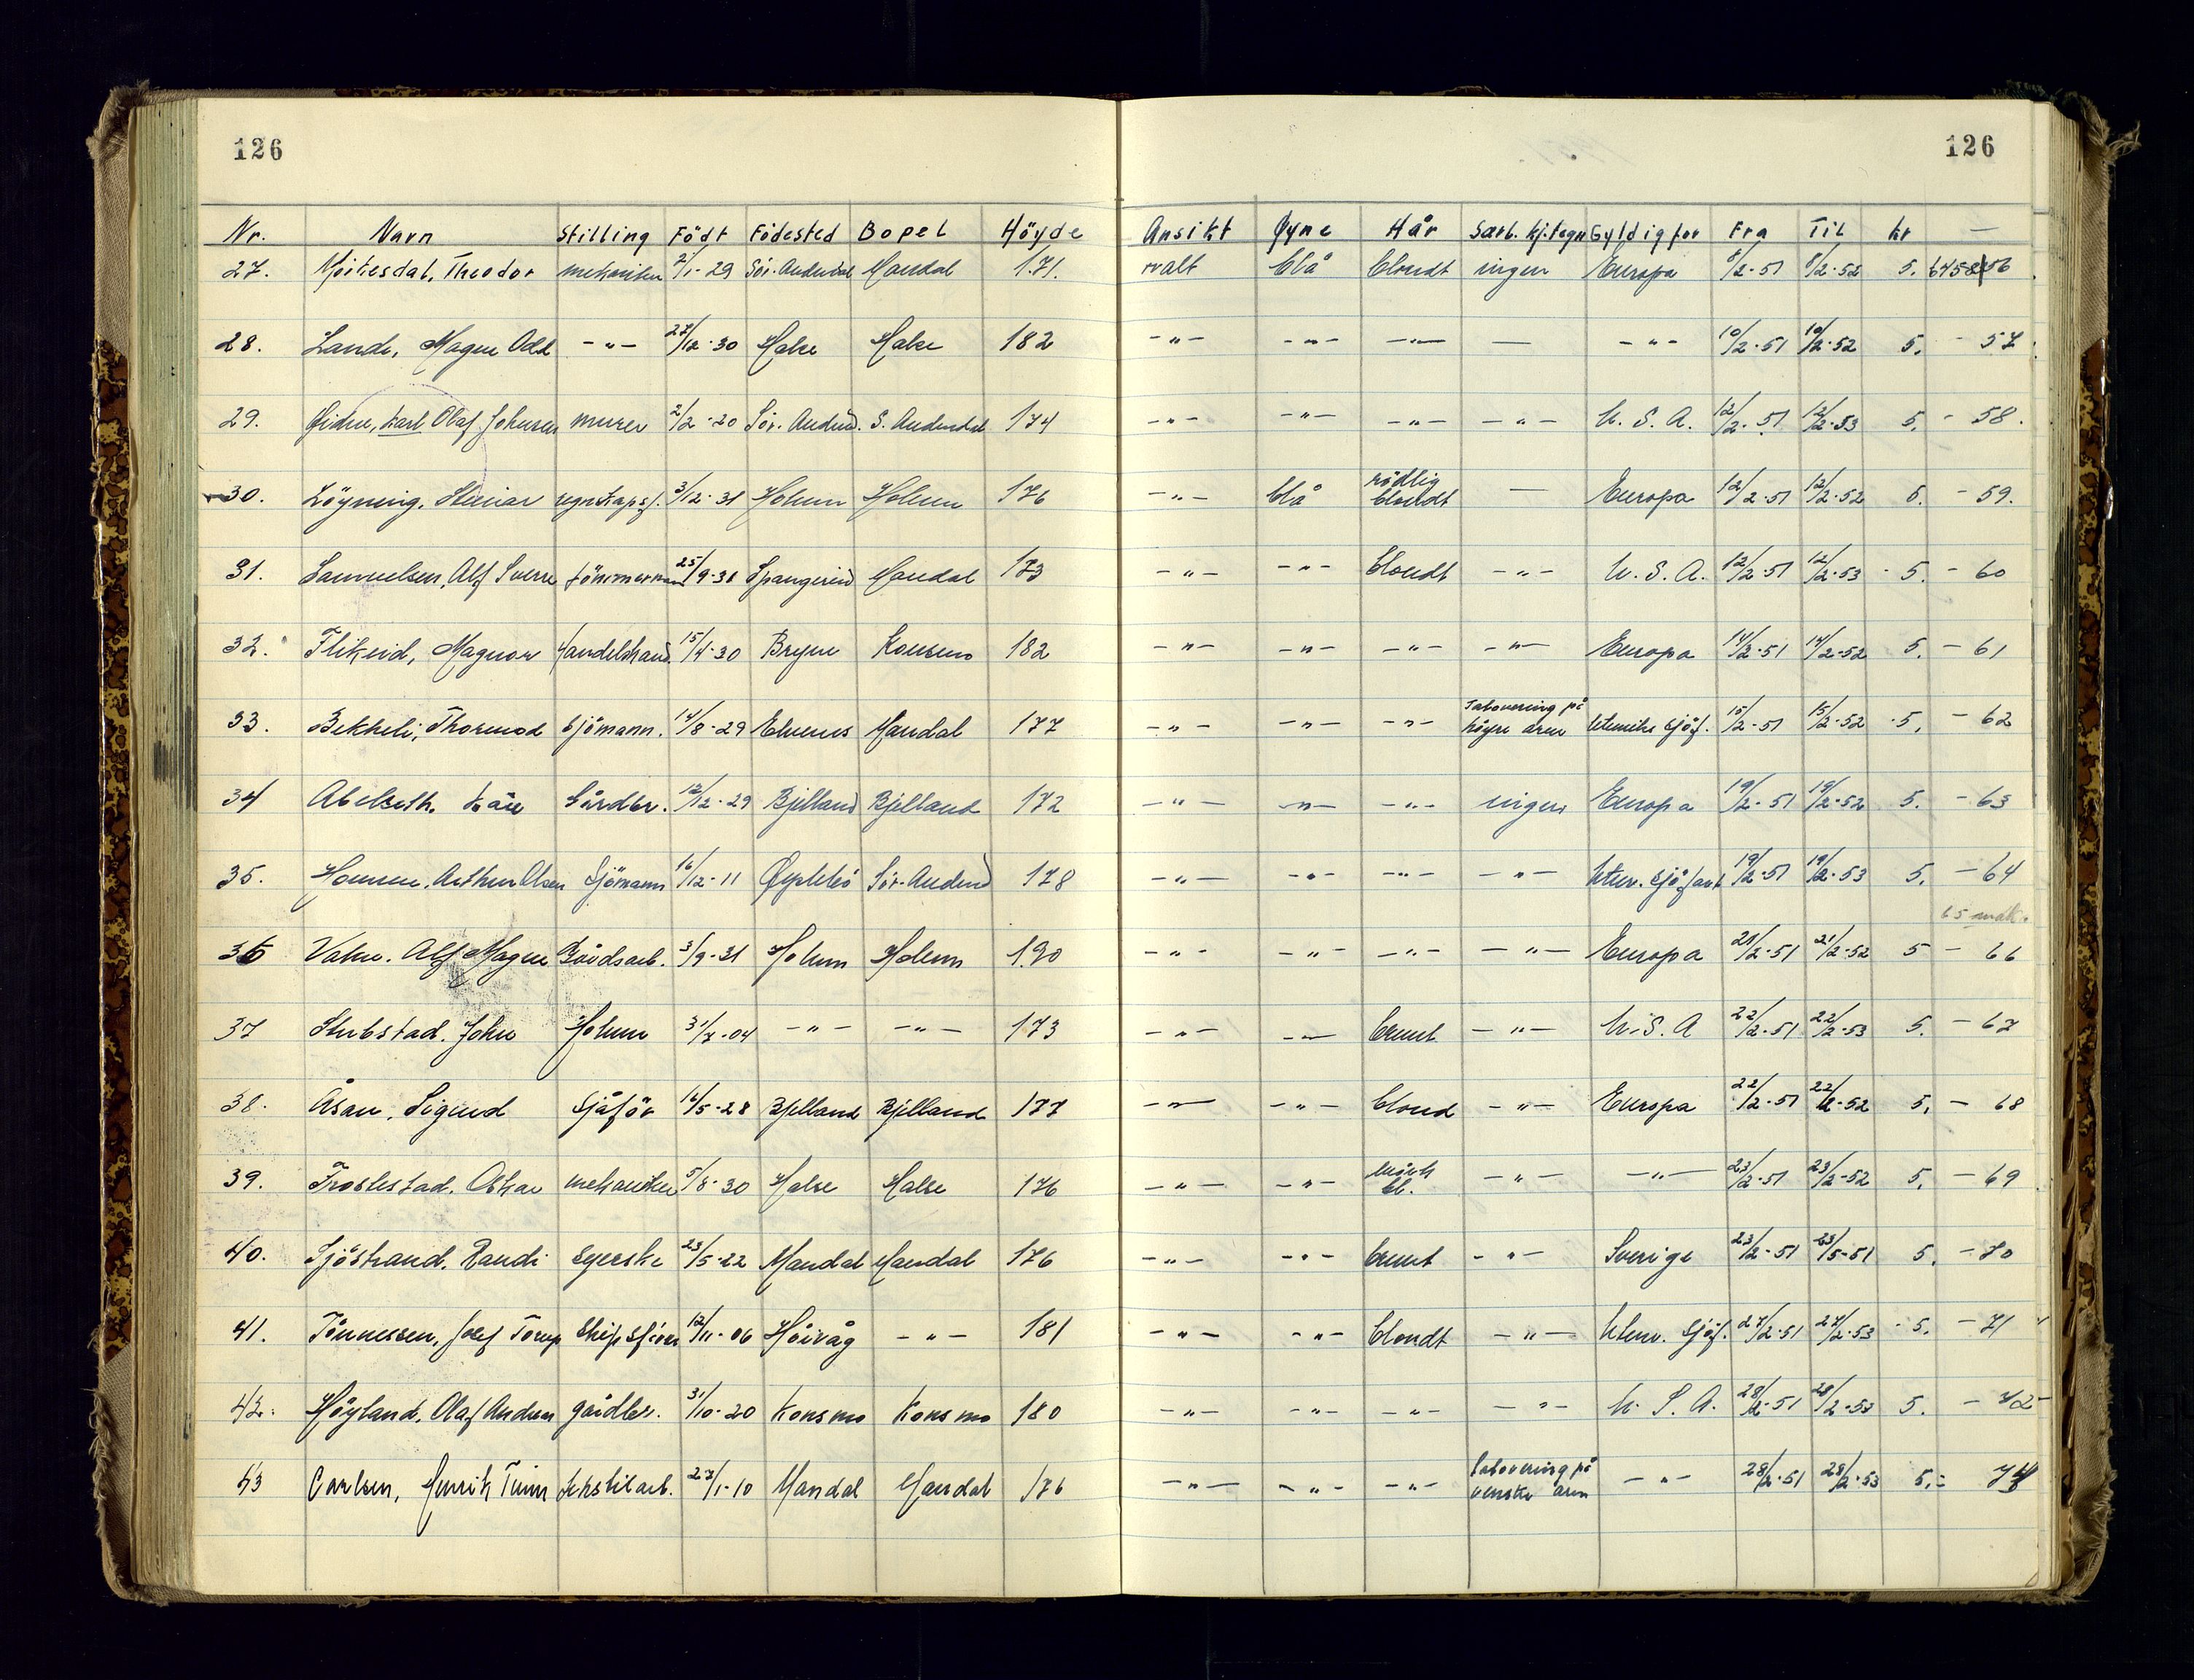 126 126
Nr. Navn Stilling Födt Födested Bopel Höyde Ansikt Øyne Hår Særb. kj.tegn Gyldig for Fra Til kr —
27. Theodor mekaniker 2/1-29 Sör. Audnedal Mandal 1.71. ovalt blå blondt ingen Europa 8/2-51 8/2-52 5. 6458/56
28. Lande, Magne Odd -"- 27/12-30 Halse Halse 182 -"- -"- -"- — -"- 10/2-51 10/2-52 5. - 57
29. Karl Olaf Johnsen murer 2/2-20 Sör. Audned. S. Audnedal 174 -"- -"- -"- -"- U. S. A. 12/2-51 12/2-53 5. - 58.
30. Löyning, Steinar regnskapsf. 3/12-31 Holum Holum 176 -"- blå rödlig blondt — Europa 12/2-51 12/2-52 5. - 59.
31. Samuelsen, Alf Sverre tömmermann 25/9-31 Spangereid Mandal 173 -"- -"- blondt -"- U. S. A. 12/2-51 12/2-53 5. - 60
32. Flikeid, Magnor Handelsmand. 15/4-30 Bryne Konsmo 182 -"- -"- -"- -"- Europa 14/2-51 14/2-52 5. - 61
33. Bekkeli, Thormod Sjömann. 14/8-29 Elvenes Mandal 177 -"- -"- -"- Tatovering på höyre arm Utenriks Sjöf. 15/2-51 15/2-52 5. - 62
34 Abelseth. Kåre Gårdbr. 12/12-29 Bjelland Bjelland 172 -"- -"- -"- ingen Europa 19/2-51 19/2-52 5. - 63
35. Arthur Olsen Sjömann 16/12-11 Öyslebö Sör-Audned 178 -"- -"- -"- -"- Utenr. Sjöfart 19/2-51 19/2-53 5. - 64
65 mak.
36 Alf Magne Gårdsarb. 3/9-31 Holum Holum 1.90 -"- -"- -"- -"- Europa 21/2-51 21/2-52 5 - 66
37 Stubstad. John Holum 31/7-04 -"- -"- 173 -"- -"- brunt -"- U.S. A 22/2-51 22/2-53 5. - 67
38. Åsan, Sigurd Sjåför 16/5-28 Bjelland Bjelland 177 -"- -"- blond -"- Europa 22/2-51 22/2-52 5. - 68
39. Trostestad. Oskar mekaniker 5/8-30 Halse Halse 176 -"- -"- mörk bl. -"- -"- 23/2-51 23/2-52 5. - 69
40. Sjöstrand. Randi Syerske 23/5-22 Mandal Mandal 176 -"- -"- brunt -"- Sverige 23/2-51 23/5-51 5. - 70
41. Tönnessen, Josef Torup Skipsförer 12/11-06 Höivåg -"- 181 -"- -"- blondt -"- Utenr. Sjöf. 27/2-51 27/2-53 5. - 71
42. Höyland, Olaf Andreas gårdbr. 31/10-20 Konsmo Konsmo 180 -"- -"- -"- -"- U. S. A. 28/2-51 28/2-53 5. - 72
43 Carlsen, Henrik Tekstilarb. 27/1-10 Mandal Mandal 176 -"- -"- -"- Tatovering på venstre arm -"- 28/2-51 28/2-53 5.-